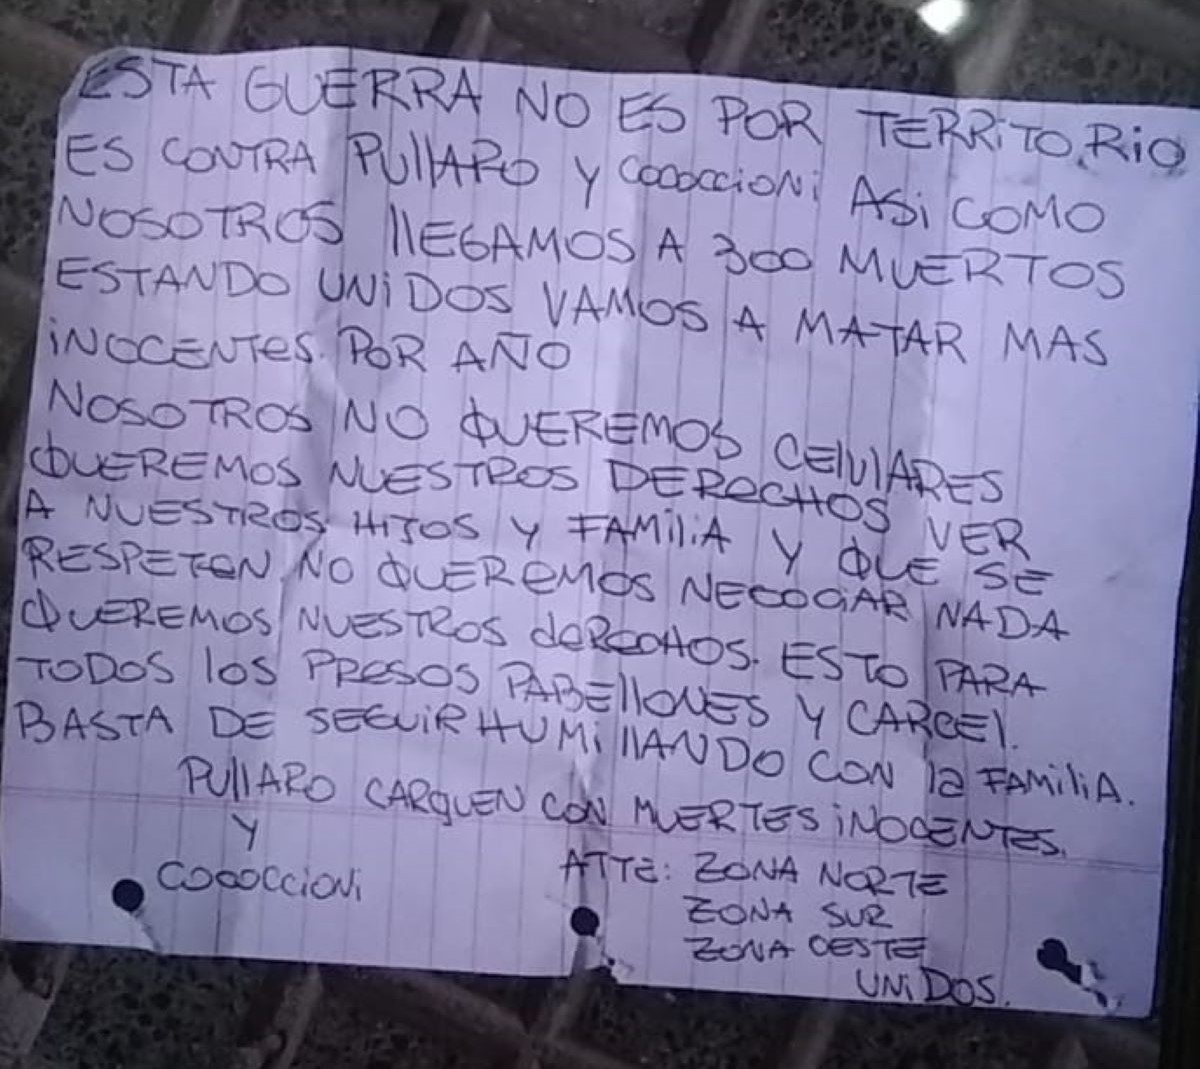 ESTA GUERRA NO ES POR TERRITORIO
ES CONTRA PUllARO Y COCOCCIONi ASi COMO
NOSOTROS llEGAMOS A 300 MUERTOS
ESTANDO UNiDOS VAMOS A MATAR MAS
iNOCENTES. POR AÑO
NOSOTROS NO QUEREMOS CElulARES
QUEREMOS NUESTROS DERECHOS VER
A NUESTROS HIJOS Y FAMiliA Y QUE SE
RESPETEN NO QUEREMOS NECOGIAR NADA
QUEREMOS NUESTROS dERECHOS. ESTO PARA
TODOS los PRESOS PABEllONES Y CARCEl.
BASTA DE SEGUIR HUMillANDO CON la FAMiliA.
PUllARO CARGUEN CON MUERTES iNOCENTES.
Y
COCOCCIONi
ATTE: ZONA NORTE
ZONA SUR
ZONA OESTE
UNiDOS.